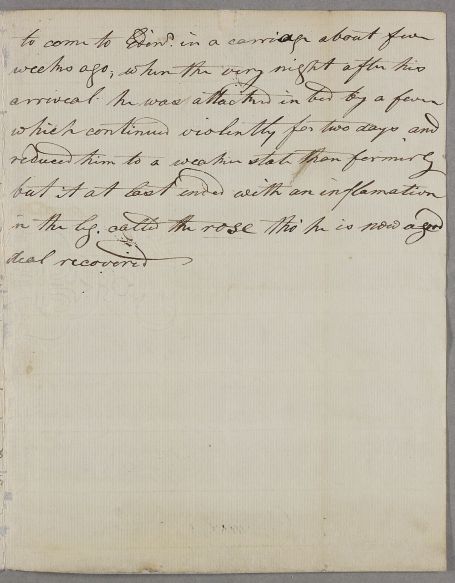 to come to Edinr. in a carriage about five
weeks ago, when the very night after his
arriveal he was attacked in bed by a fever
which continued violently for two days and
reduced him to a weaker state than formerly
but it at last ended with an inflamation
in the leg. called the rose tho' he is now a good
deal recovered